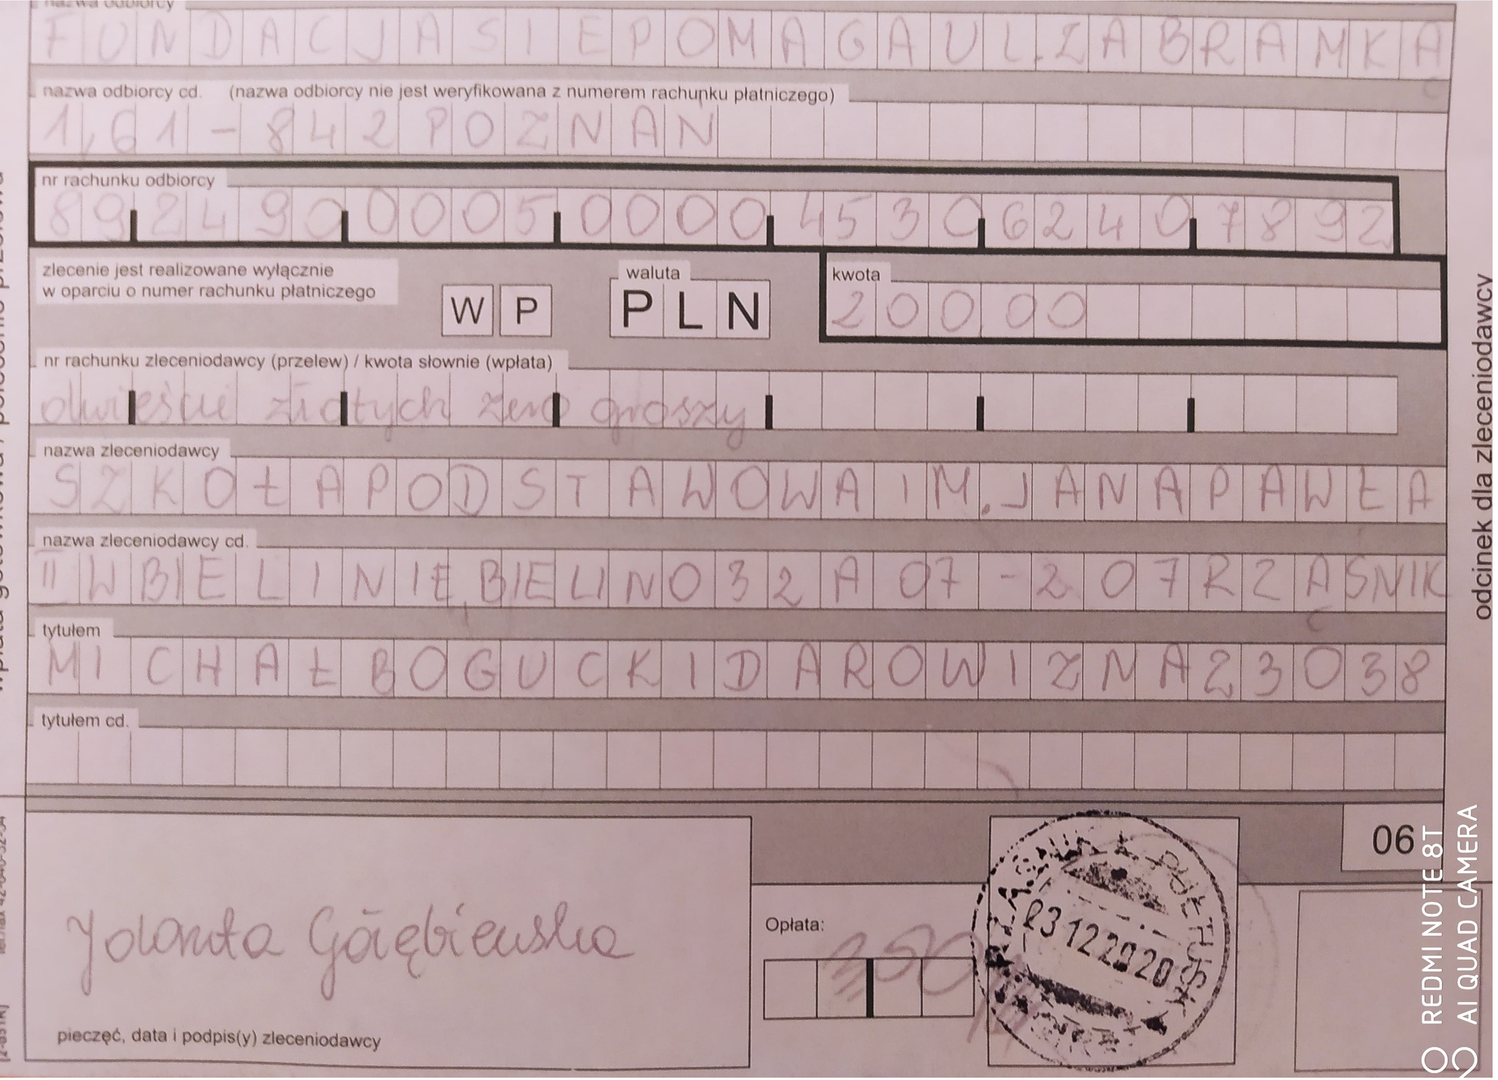 nazwa odbiorcy
FUNDACJA SIEPOMAGA UL.ZA BRAMKĄ
nazwa odbiorcy cd. (nazwa odbiorcy nie jest weryfikowana z numerem rachunku płatniczego)
1,61-842 POZNAŃ
nr rachunku odbiorcy
89 2490 0005 0000 4530 6240 7892
zlecenie jest realizowane wyłącznie
w oparciu o numer rachunku płatniczego
W P
waluta
PLN
kwota
200 00
nr rachunku zleceniodawcy (przelew) / kwota słownie (wpłata)
dwieście złotych zero groszy
nazwa zleceniodawcy
SZKOŁA PODSTAWOWA IM.JANA PAWŁA
nazwa zleceniodawcy cd.
II W BIELINIE, BIELINO 32A 07-207 RZĄŚNIK
tytułem
MICHAŁ BOGUCKI DAROWIZNA 23038
tytułem cd.
06
Jolanta Gołębiewska
pieczęć, data i podpis(y) zleceniodawcy
Opłata:
350
PUŁTUSK
23 12 2020
odcinek dla zleceniodawcy
REDMI NOTE 8T
AI QUAD CAMERA